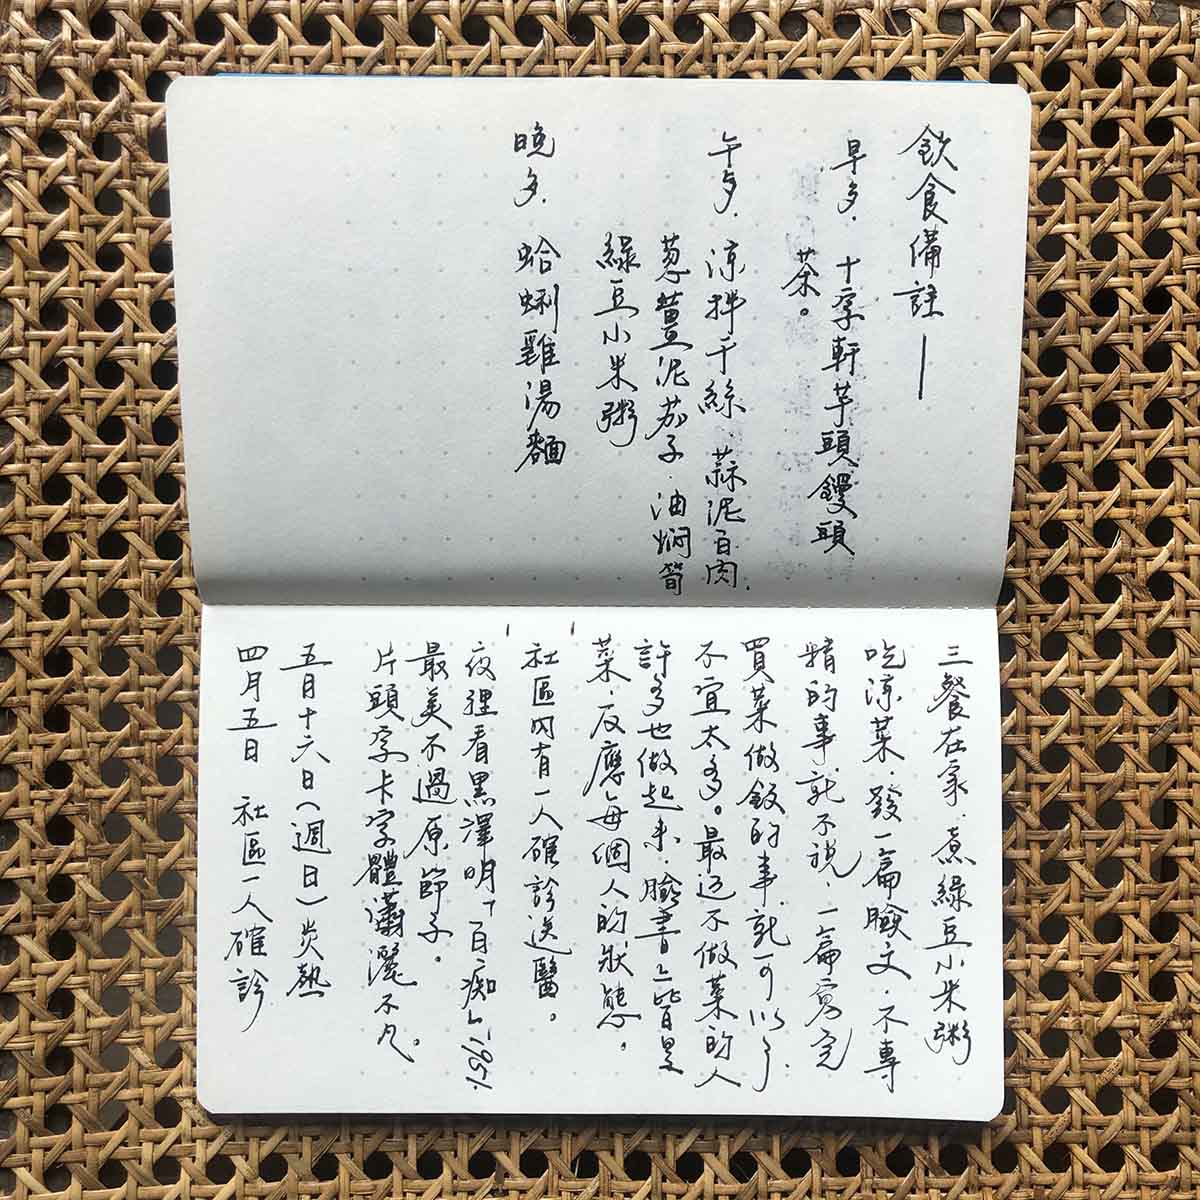 飲食備註——
早歺. 十字軒芋頭饅頭
茶。
午歺. 涼拌干絲.蒜泥白肉.
蔥薑泥茄子.油焖筍
綠豆小米粥
晚歺. 蛤蜊雞湯麵
三餐在家.煮綠豆小米粥
吃涼菜.發一篇臉文.不專
精的事就不說.一篇寫完
買菜做飯的事就可以了.
不宜太多。最近不做菜的人
許多也做起來.臉書上皆是
菜.反應每個人的狀態。
社區內有一人確診送醫。
夜裡看黑澤明「白痴」1951.
最美不過原節子。
片頭字卡字體瀟灑不凡。
五月十六日(週日)炎熱
四月五日 社區一人確診